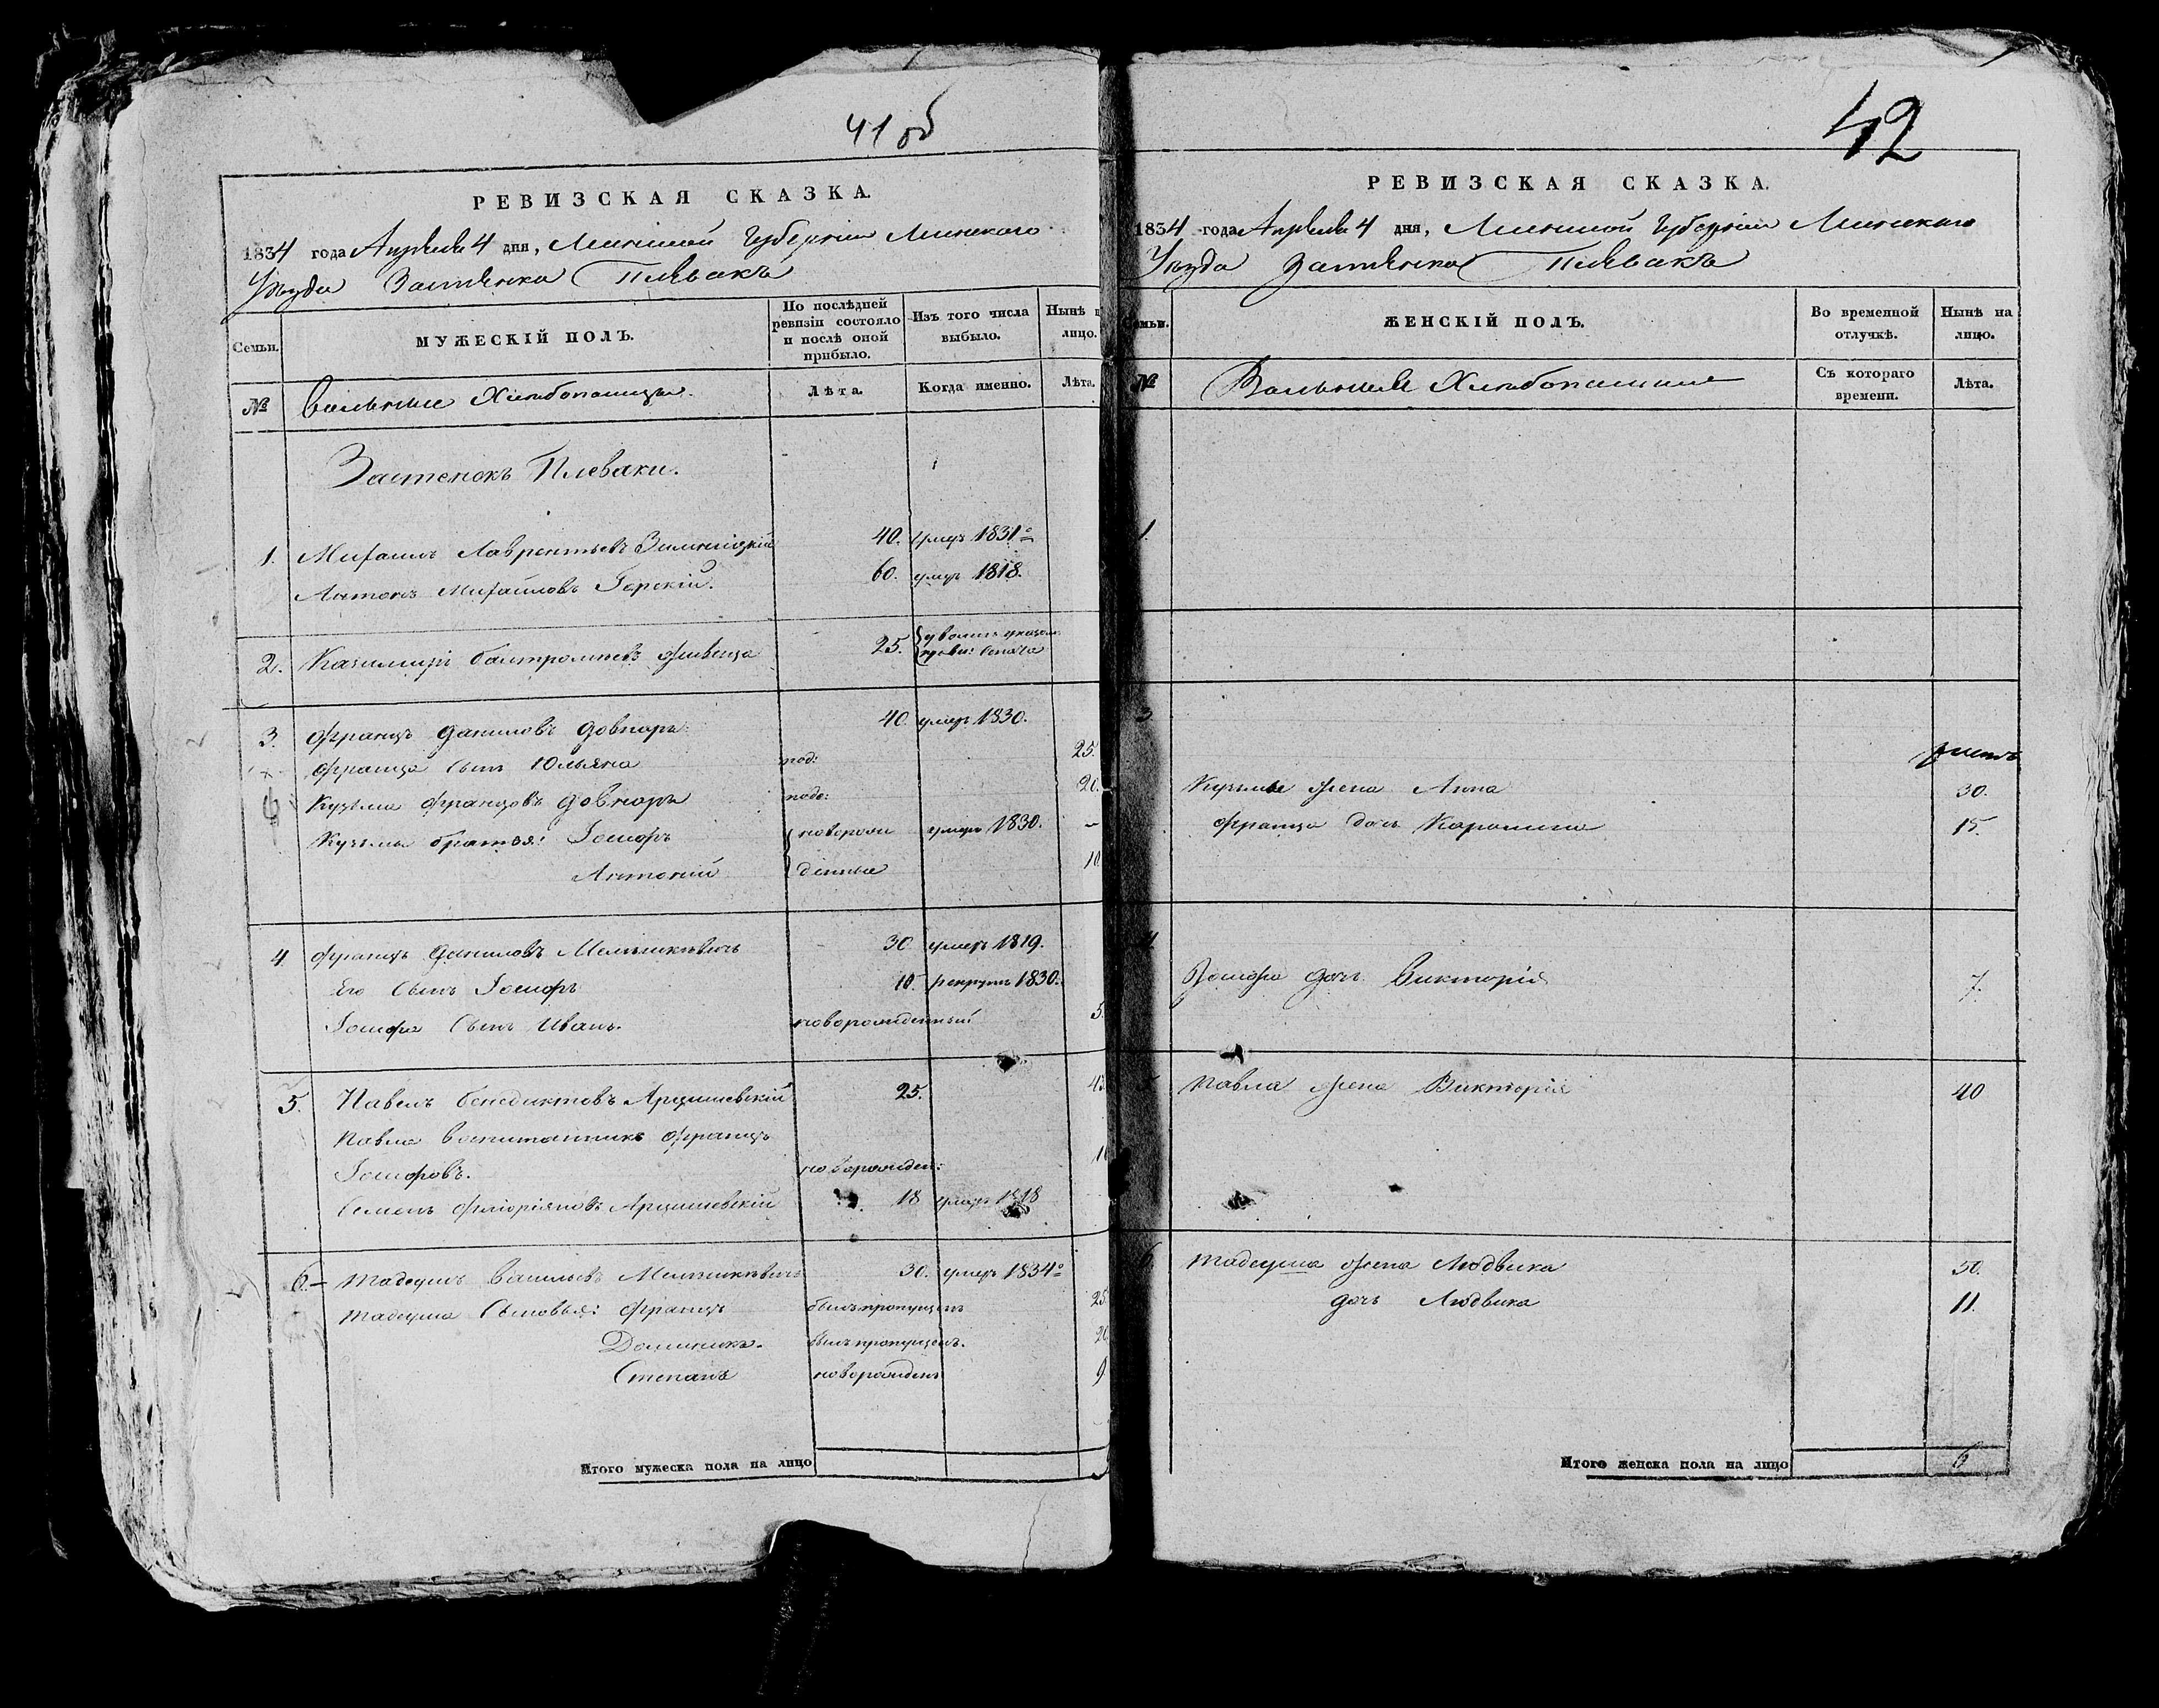 41 об
РЕВИЗСКАЯ СКАЗКА.
1834 года Апреля 4 дня, Минской Губернiи Минскаго
Уезда Застенка Плевакъ
Семьи.
МУЖЕСКIЙ ПОЛЪ.
По послѣдней ревизiи состояло и послѣ оной прибыло.
Изъ того числа выбыло.
Нынѣ н лицо.
№
Вольные Хлебопашцы.
Лѣта.
Когда именно.
Лѣта.
Застенокъ Плеваки.
1. Михаилъ Лаврентьевъ 40. умеръ 1831º
Антонъ Михайловъ Горскiй. 60. умеръ 1818.
2. Казимиръ 25.
3. Францъ Даниловъ Довнаръ 40. умеръ 1830.
Франца сынъ Юльянъ 25.
Кузьма Францовъ Довнаръ 20.
Кузьмы братья: Iосифъ новорож умеръ 1830. –
Антонiй денные 10
4. Францъ Даниловъ Мельникевичъ 30 умеръ 1819.
Его сынъ Iосифъ 10. рекрутъ 1830.
Iосифа сынъ Иванъ. новорожденный 5.
5. Павелъ Бенедиктовъ Арцишевскiй 25.
Павла воспитанникъ Францъ
Iосифовъ. новорожден:
Семенъ Флорiяновъ Арцишевскiй 18 умеръ 1818
6. Тадеушъ Васильевъ Мельникевичъ 30. умеръ 1834º
Тадеуша сыновья: Францъ былъ пропущенъ 25
Доминикъ. былъ пропущенъ. 20
Степанъ новорожденъ 9
Итого мужеска пола на лицо
42
РЕВИЗСКАЯ СКАЗКА.
1834 года Апреля 4 дня, Минской Губернiи Минскаго
Уезда Застенка Плевакъ
Семьи.
ЖЕНСКIЙ ПОЛЪ.
Во временной отлучкѣ.
Нынѣ на лицо.
№
Вольные Хлебопашцы
Съ котораго времени.
Лѣта.
1.
3
Кузьмы жена Анна 30.
Франца дочь Каролина 15.
4
Iосифа дочь Викторiя 7.
Павла жена Викторiя 40
6 Тадеуша жена Людвика 50.
дочь Людвика 11.
Итого женска пола на лицо 6